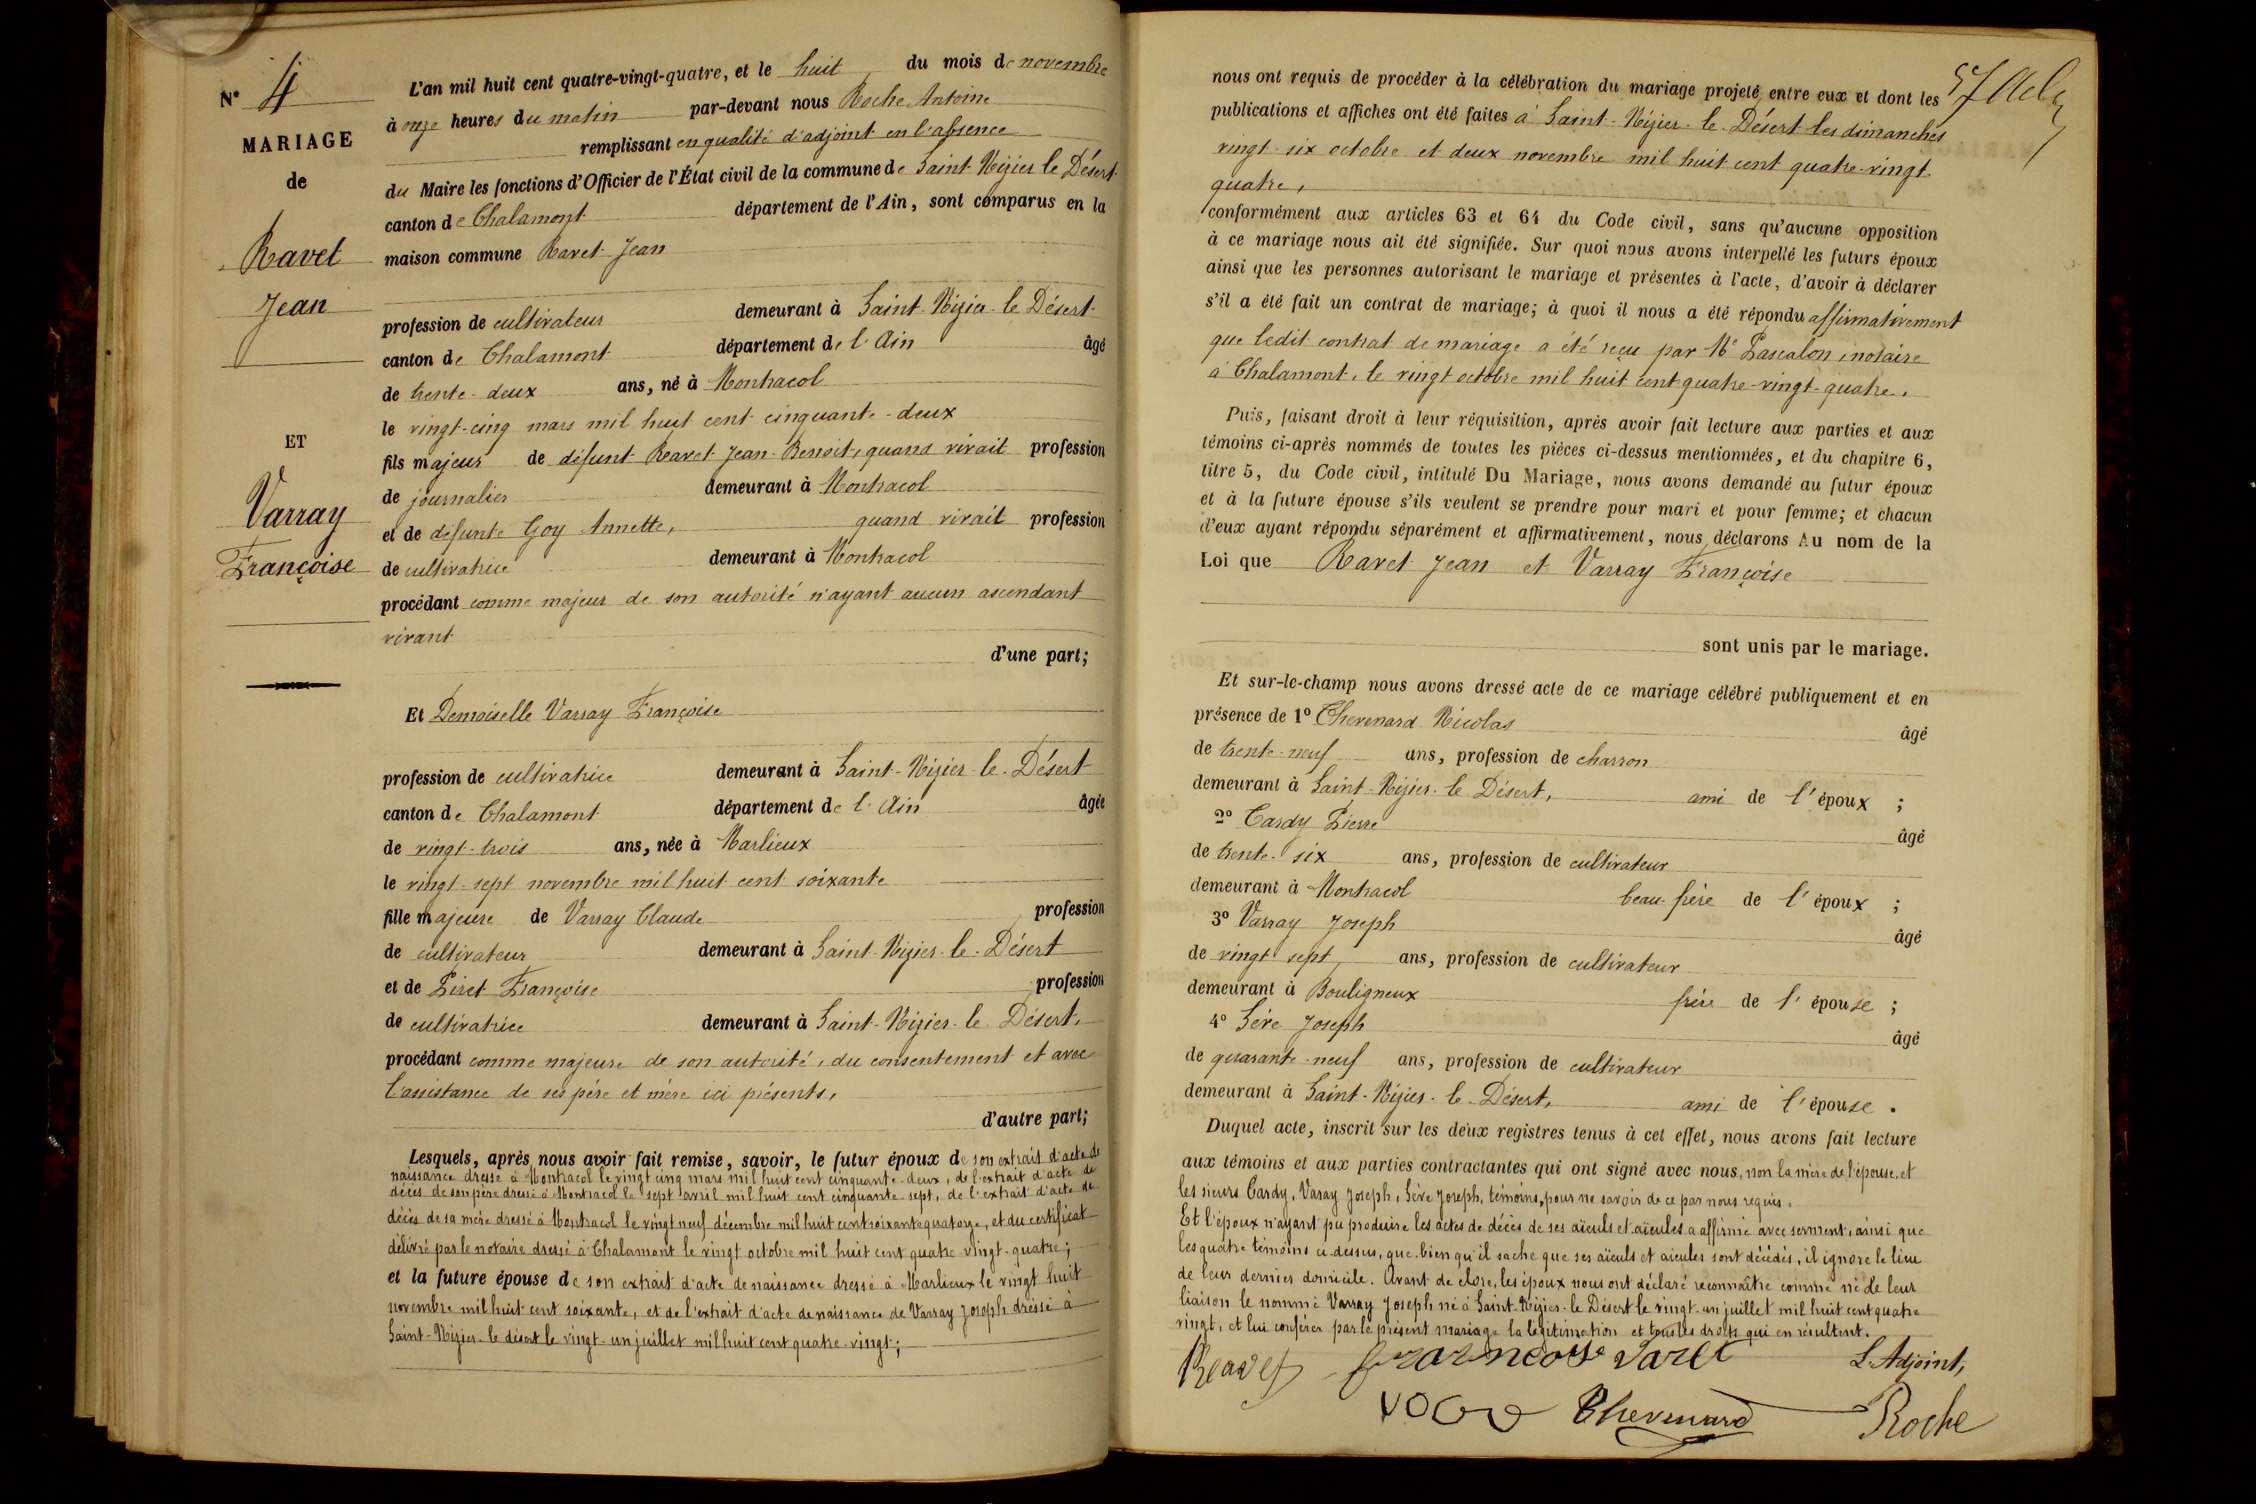 N° 4
MARIAGE
de
Ravet
Jean
ET
Varray
Françoise
L'an mil huit cent quatre-vingt-quatre, et le huit du mois de novembre
à onze heures du matin par-devant nous Roche Antoine
remplissant en qualité d'adjoint en l'absence
du Maire les fonctions d'Officier de l'État civil de la commune de Saint-Nizier le Désert
canton de Chalamont département de l'Ain, sont comparus en la
maison commune Ravet Jean
profession de cultivateur demeurant à Saint-Nizier-le-Désert
canton de Chalamont département de l'Ain âgé
de trente-deux ans, né à Montracol
le vingt-cinq mars mil huit cent cinquante-deux
fils majeur de défunt Ravet Jean-Benoit, quand vivait profession
de journalier demeurant à Montracol
et de défunte Goy Annette, quand vivait profession
de cultivatrice demeurant à Montracol
procédant comme majeur de son autorité n'ayant aucun ascendant
vivant
d'une part;
Et Demoiselle Varray Françoise
profession de cultivatrice demeurant à Saint-Nizier-le-Désert
canton de Chalamont département de l'Ain âgée
de vingt-trois ans, née à Marlieux
le vingt-sept novembre mil huit cent soixante
fille majeure de Varray Claude profession
de cultivateur demeurant à Saint-Nizier-le-Désert
et de Piret Françoise profession
de cultivatrice demeurant à Saint-Nizier-le Désert,
procédant comme majeure de son autorité, du consentement et avec
l'assistance de ses père et mère ici présents,
d'autre part;
Lesquels, après nous avoir fait remise, savoir, le futur époux de son extrait d'acte de
naissance dressé à Montracol le vingt cinq mars mil huit cent cinquante-deux, de l'extrait d'acte de
décès de son père dressé à Montracol le sept avril mil huit cent cinquante-sept, de l'extrait d'acte de
décès de sa mère dressé à Montracol le vingt neuf décembre mil huit cent soixante quatorze, et du certificat
délivré par le notaire dressé à Chalamont le vingt octobre mil huit cent quatre vingt-quatre;
et la future épouse de son extrait d'acte de naissance dressé à Marlieux le vingt huit
novembre mil huit cent soixante, et de l'extrait d'acte de naissance de Varray Joseph dressé à
Saint-Nizier-le désert le vingt-un juillet mil huit cent quatre-vingt;
nous ont requis de procéder à la célébration du mariage projeté entre eux et dont les
publications et affiches ont été faites à Saint-Nizier-le-Désert les dimanches
vingt-six octobre et deux novembre mil huit cent quatre-vingt
quatre,
conformément aux articles 63 et 64 du Code civil, sans qu'aucune opposition
à ce mariage nous ait été signifiée. Sur quoi nous avons interpellé les futurs époux
ainsi que les personnes autorisant le mariage et présentes à l'acte, d'avoir à déclarer
s'il a été fait un contrat de mariage; à quoi il nous a été répondu affirmativement
que ledit contrat de mariage a été reçu par Me Pascalon, notaire
à Chalamont, le vingt octobre mil huit cent quatre-vingt-quatre.
Puis, faisant droit à leur réquisition, après avoir fait lecture aux parties et aux
témoins ci-après nommés de toutes les pièces ci-dessus mentionnées, et du chapitre 6,
titre 5, du Code civil, intitulé Du Mariage, nous avons demandé au futur époux
et à la future épouse s'ils veulent se prendre pour mari et pour femme; et chacun
d'eux ayant répondu séparément et affirmativement, nous déclarons Au nom de la
Loi que Ravet Jean et Varray Françoise
sont unis par le mariage.
Et sur-le-champ nous avons dressé acte de ce mariage célébré publiquement et en
présence de 1° Thevenard Nicolas âgé
de trente-neuf ans, profession de charron
demeurant à Saint-Nizier-le Désert, ami de l'époux ;
2° Cardy Pierre âgé
de trente-six ans, profession de cultivateur
demeurant à Montracol beau-frère de l'époux ;
3° Varray Joseph âgé
de vingt sept ans, profession de cultivateur
demeurant à Bouligneux frère de l'épouse ;
4° Sève Joseph âgé
de quarante-neuf ans, profession de cultivateur
demeurant à Saint-Nizier-le-Désert, ami de l'épouse.
Duquel acte, inscrit sur les deux registres tenus à cet effet, nous avons fait lecture
aux témoins et aux parties contractantes qui ont signé avec nous, non la mère de l'épouse, et
les sieurs Cardy, Varay Joseph, Sève Joseph, témoins, pour ne savoir de ce par nous requis.
Et l'époux n'ayant pu produire les actes de décès de ses aïeuls et aïeules a affirmé avec serment, ainsi que
les quatre témoins ci-dessus, que bien qu'il sache que ses aïeuls et aïeules sont décédés, il ignore le lieu
de leur dernier domicile. Avant de clore, les époux nous ont déclaré reconnaître comme né de leur
liaison le nommé Varray Joseph né à Saint-Nizier-le Désert le vingt-un juillet mil huit cent quatre
vingt, et lui conférer par le présent mariage la légitimation et tous les droits qui en résultent.
Ravet francoise L'Adjoint,
Thevenard Roche